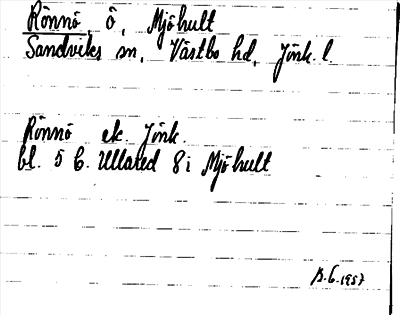 Rönnö, ö, Mjöhult
Sandviks sn, Västbo hd, Jönk. l.
Rönnö ek. Jönk.
bl. 5 b. Ullared 8 i Mjöhult
B.G. 1957